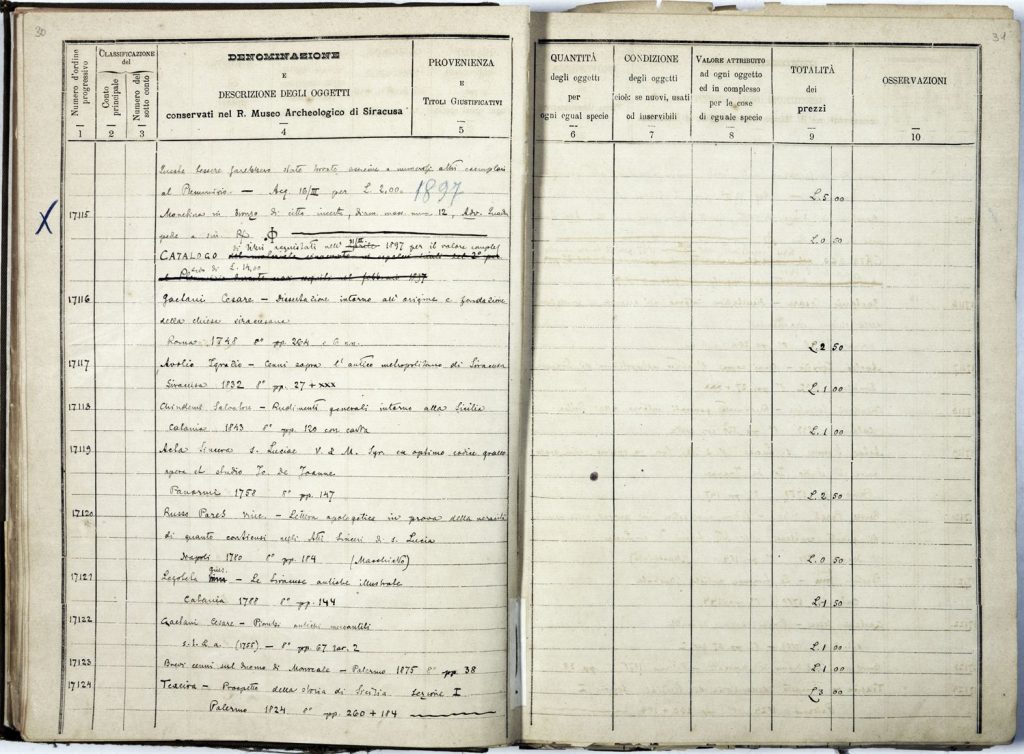 30
31
Numero d'ordine progressivo
CLASSIFICAZIONE del
Conto principale
Numero del sotto conto
DENOMINAZIONE
E
DESCRIZIONE DEGLI OGGETTI
conservati nel R. Museo Archeologico di Siracusa
PROVENIENZA
E
TITOLI GIUSTIFICATIVI
QUANTITÀ
degli oggetti
per
ogni egual specie
CONDIZIONE
degli oggetti
cioè: se nuovi, usati
od inservibili
VALORE ATTRIBUITO
ad ogni oggetto
ed in complesso
per le cose
di eguale specie
TOTALITÀ
dei
prezzi
OSSERVAZIONI
1 2 3 4 5 6 7 8 9 10
stato trovato assieme a numerosi altri esemplari
al Plemmirio. — Acq. 16/III per L. 2,00. 1897 L. 5 00
X 17115 Monetina in bronzo di città incerta, diam. mass. mm. 12, Adv. Quadru
pede a sin. Rf. Φ L. 0 50
di libri acquistati nell' 31/III aprile 1897 per il valore comples
CATALOGO
sivo di L. 14,00
17116 Gaetani Cesare — Dissertazione intorno all'origine e fondazione
della chiesa siracusana
Roma 1748 8° pp. 264 L. 2 50
17117 Avolio Ignazio — Cenni sopra l'antico metropolitano di Siracusa
Siracusa 1832 8° pp. 27 + xxx L. 1 00
17118 Chindemi Salvatore — Rudimenti generali intorno alla Sicilia
Catania 1843 8° pp. 120 con carta L. 1 00
17119 Acta Sincera s. Luciae V. & M. Syr. ex optimo codice graeco
opera et studio Jo. de Joanne
Panormi 1758 8° pp. 147 L. 2 50
17120 Russo Pares Vinc. — Lettera apologetica in prova della veracità
di quanto contiensi negli Atti Sinceri di s. Lucia
Napoli 1780 8° pp. 184 (Macchiato) L. 0 50
17121 Logoteta Gius. — Le Siracuse antiche illustrate
Catania 1788 8° pp. 144 L. 1 50
17122 Gaetani Cesare — Piombi antichi mercantili
s. l. & a. (1755). — 8° pp. 67 tav. 2 L. 1 00
17123 Brevi cenni sul duomo di Monreale — Palermo 1875 8° pp 38 L. 1 00
17124 — Prospetto della storia di Sicilia. Sezione I
Palermo 1824. 8° pp. 260 + 184 L. 3 00